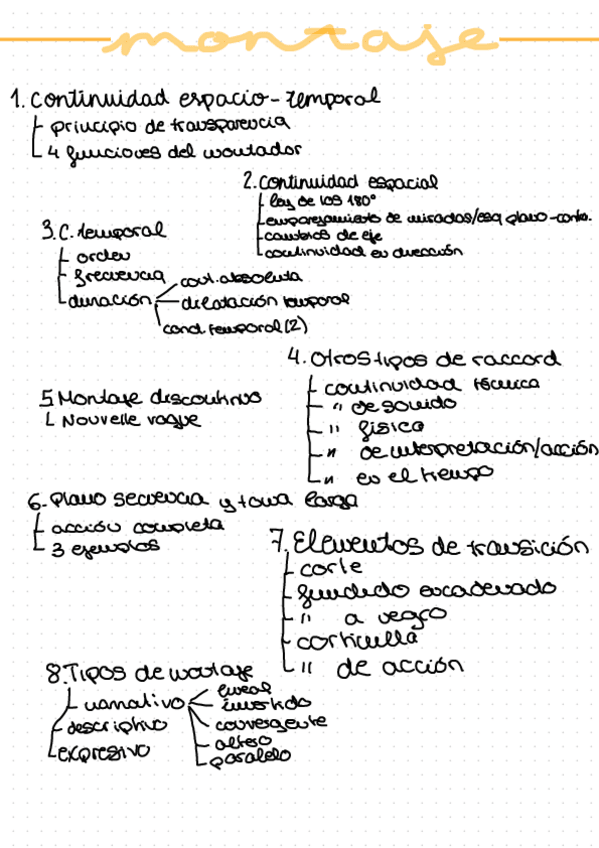 montaje
1. continuidad espacio-temporal
principio de transparencia
4 funciones del montador
2. continuidad espacial
ley de los 180°
emparejamiento de miradas/esq plano-contra.
cambios de eje
continuidad en dirección
3. C. temporal
orden
frecuencia
duración
cont. absoluta
dilatación temporal
cond. temporal (2)
4. Otros tipos de raccord
continuidad técnica
" de sonido
" física
" de interpretación/acción
" en el tiempo
5 Montaje discontinuo
Nouvelle vague
6. plano secuencia y toma larga
acción completa
3 ejemplos
7. Elementos de transición
corte
fundido encadenado
" a negro
cortinilla
" de acción
8. Tipos de montaje
narrativo
lineal
invertido
convergente
alterno
paralelo
descriptivo
expresivo